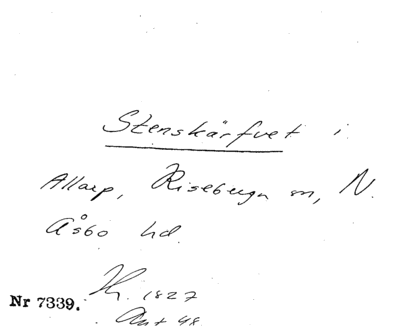 Stenskärfvet i
Allarp, Riseberga sn, N.
Åsbo hd.
Nr 7339. 1827
48